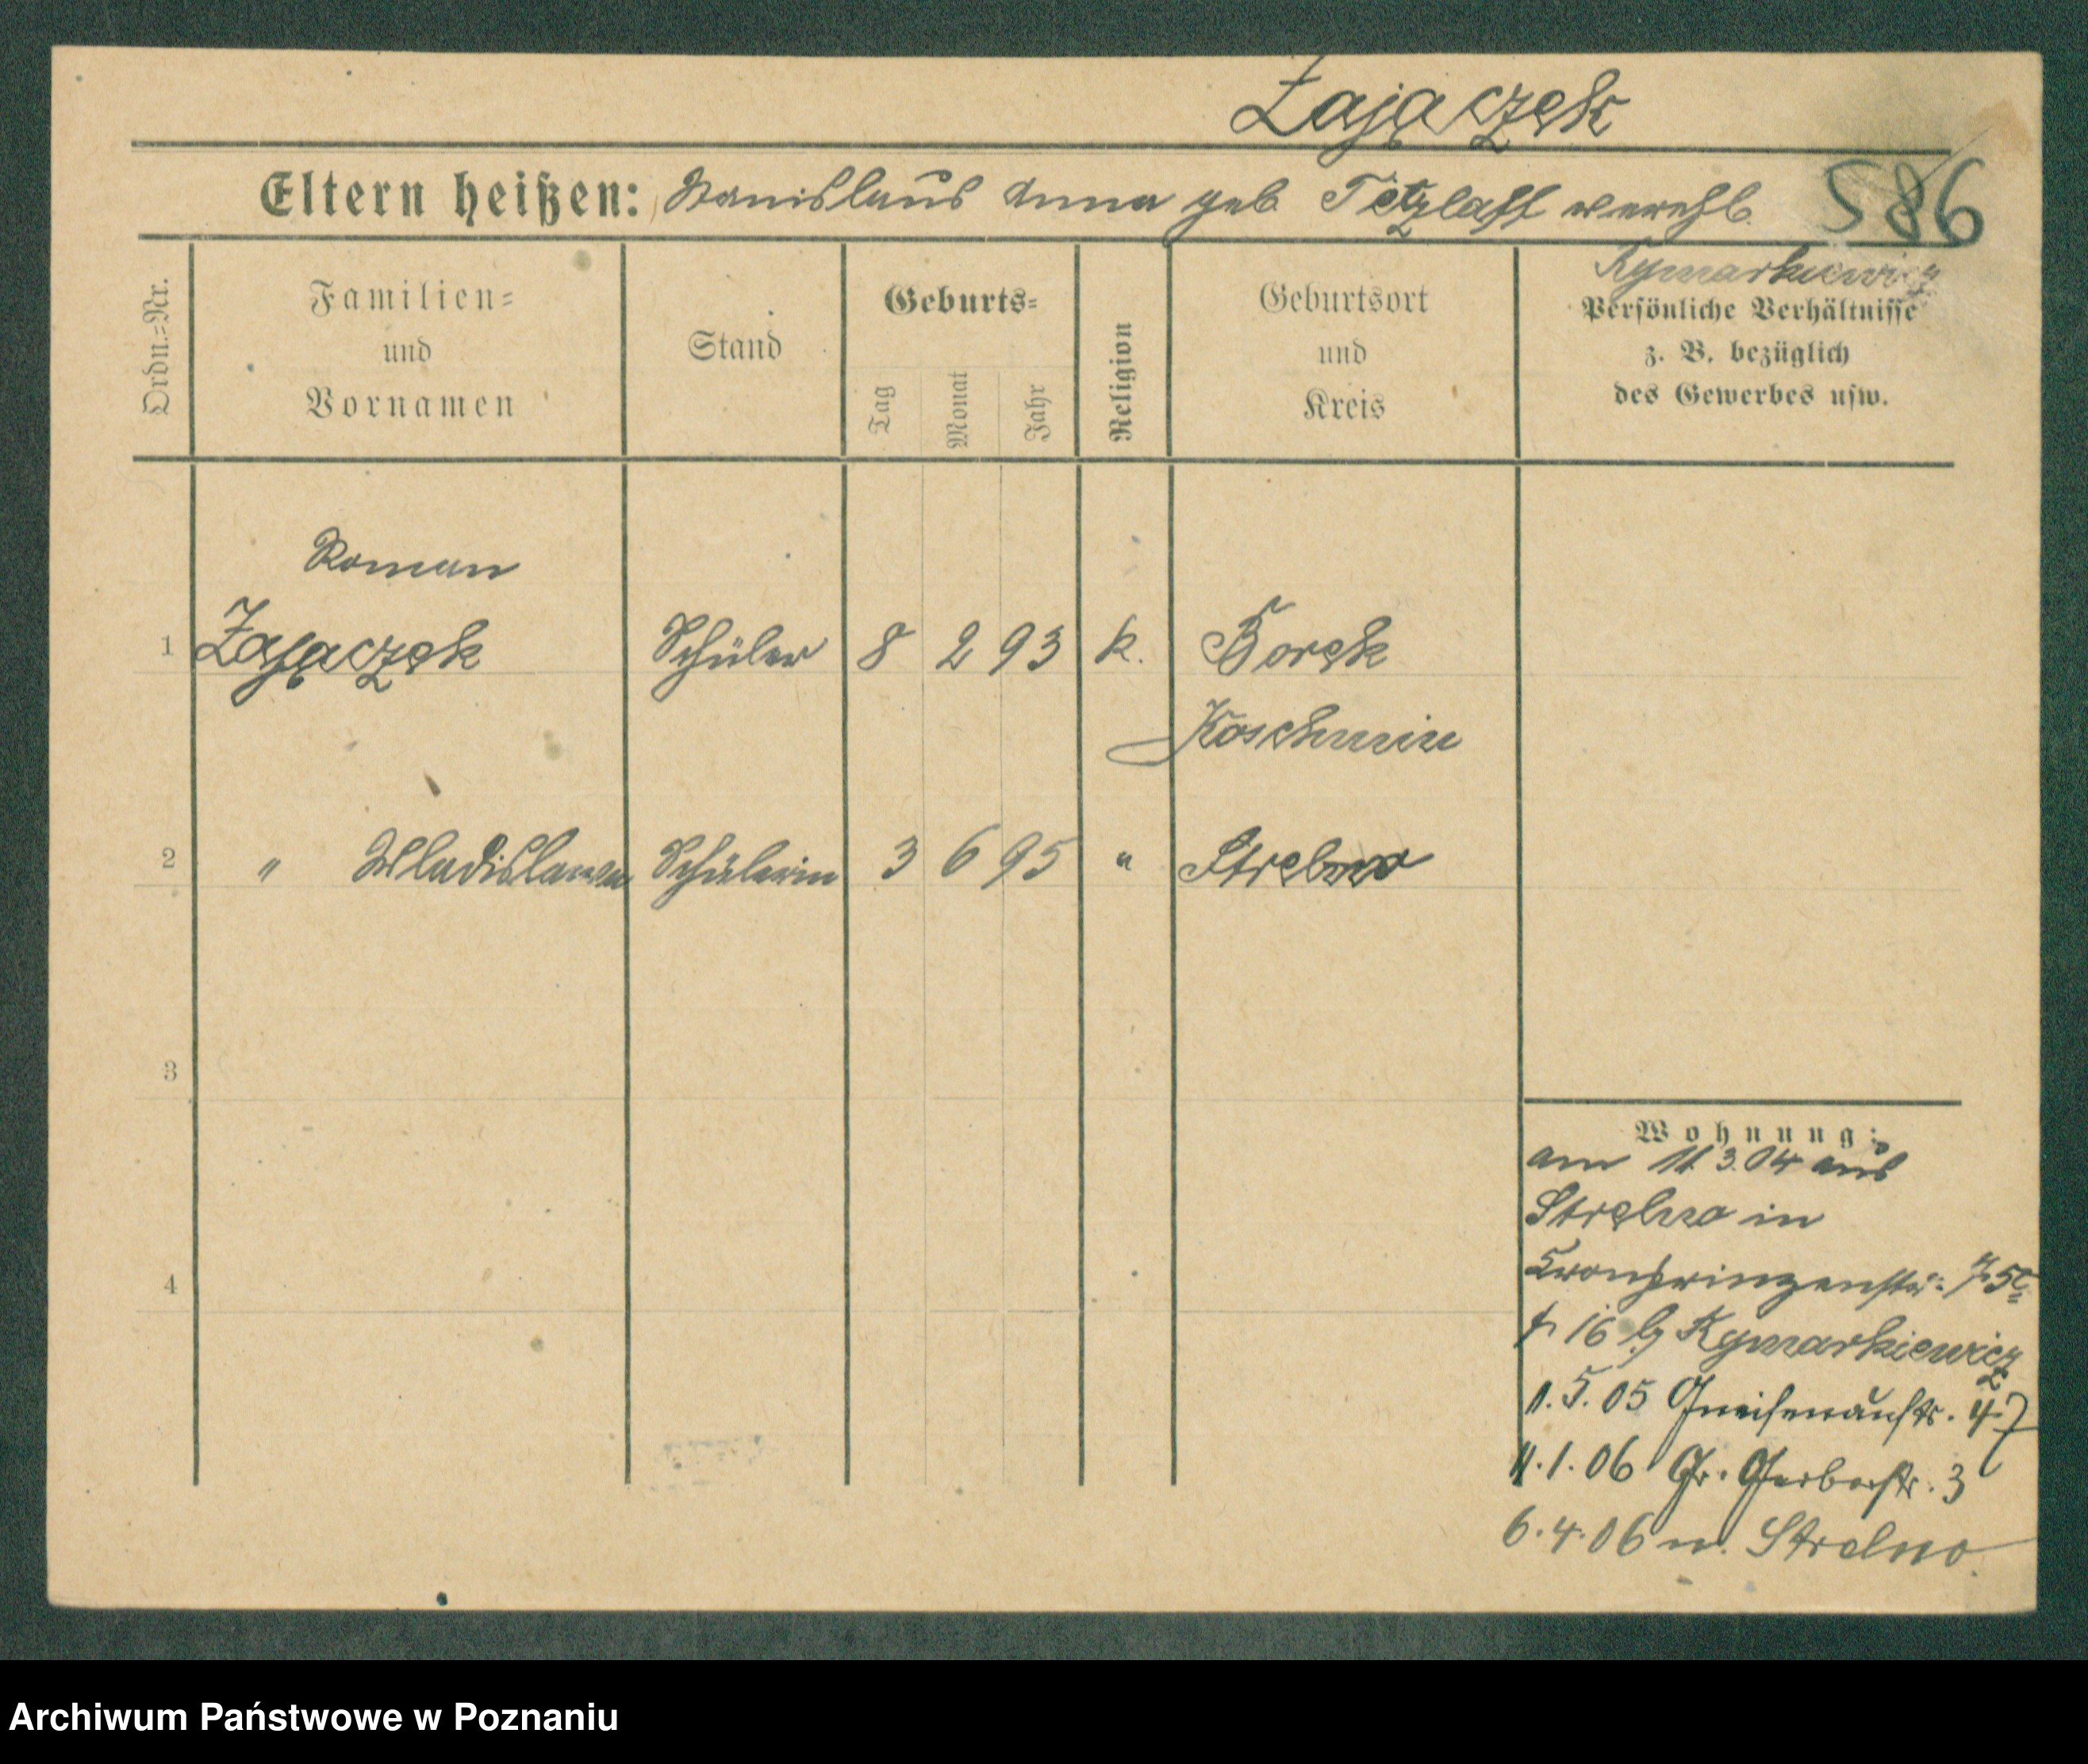 Zając̨zek
Eltern heißen: Stanislaus Anna geb. Tetzlaff verehl. 586
Kymarkiewicz
Ordn.=Nr.
Familien=
und
Vornamen
Stand
Geburts=
Tag
Monat
Jahr
Religion
Geburtsort
und
Kreis
Persönliche Verhältnisse
z. B. bezüglich
des Gewerbes usw.
Roman
1 Zajączek Schüler 8 2 93 k. Borek
Koschmin
2 " Wladislawa Schülerin 3 6 95 " Strelno
3
4
Wohnung:
am 11 3. 04 aus
Strelno in
Kronprinzenstr.
16 b/ Kymarkiewicz
11. 5. 05 Gneisenaustr. 4
11. 1. 06 Gr. Gerberstr. 3
6. 4. 06 n. Strelno.
Archiwum Państwowe w Poznaniu